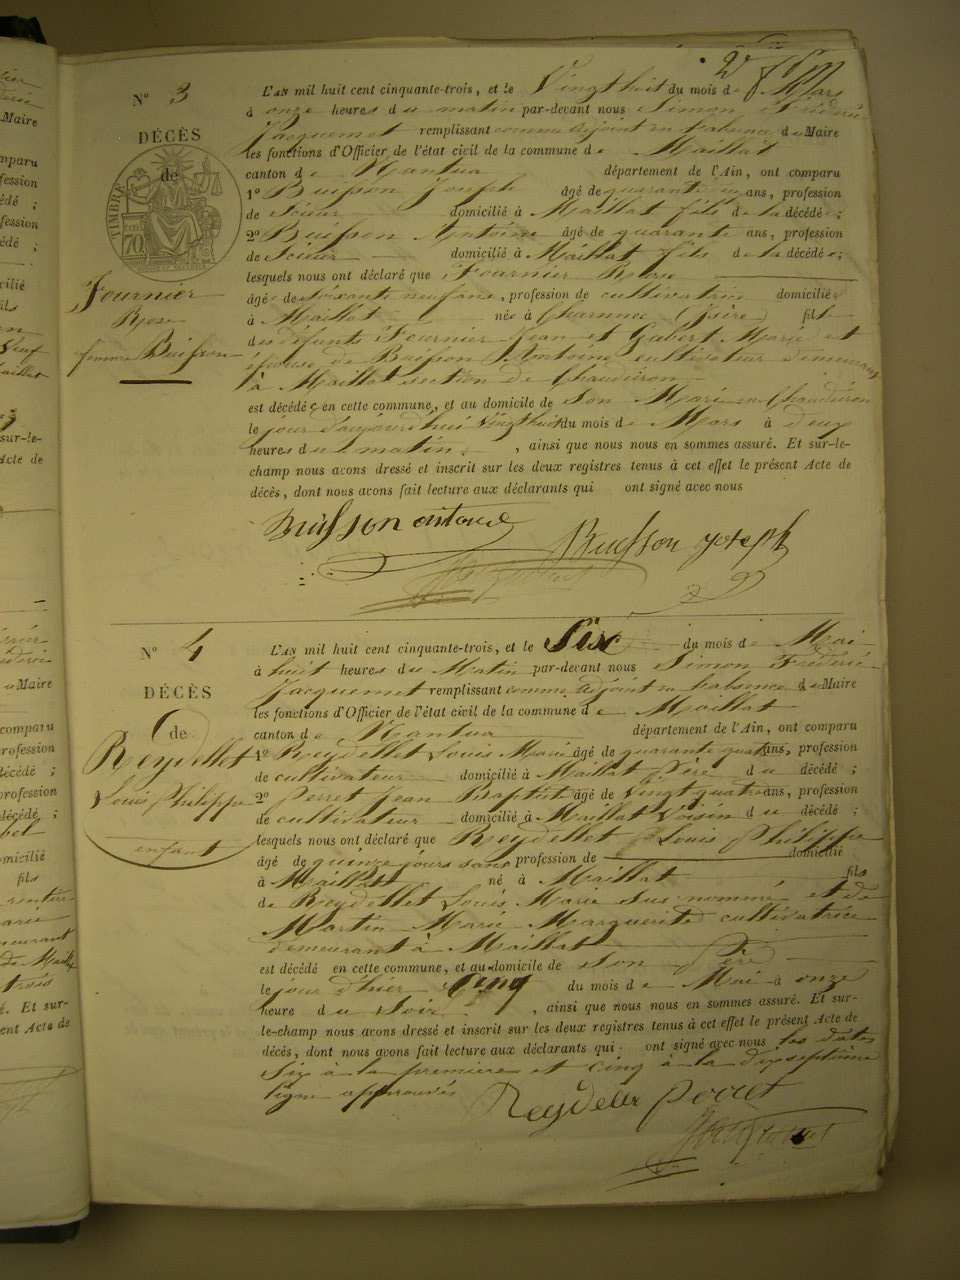 N° 3
DÉCÈS
de
TIMBRE
70
Fournier
Rose
femme Buisson
L'AN mil huit cent cinquante-trois, et le Vingthuit du mois de Mars
à onze heures du matin par-devant nous Simon Frédéric
Jacquemet remplissant comme adjoint en l'absence du Maire
les fonctions d'Officier de l'état civil de la commune de Maillat
canton de Nantua département de l'Ain, ont comparu
1° Buisson Joseph âgé de quarante un ans, profession
de Scieur domicilié à Maillat fils de la décédée;
2° Buisson Antoine âgé de quarante ans, profession
de Scieur domicilié à Maillat fils de la décédée;
lesquels nous ont déclaré que Fournier Rose
âgée de Soixante neuf ans, profession de cultivatrice domiciliée
à Maillat née à Charnnec (Isère) fille
des défunts Fournier Jean et Gabert Marie et
épouse de Buisson Antoine cultivateur demeurant
à Maillat section de Chaudüron
est décédée en cette commune, et au domicile de son Mari en Chaudüron
le jour d'aujourd'hui Vingthuit du mois de Mars à deux
heures du matin , ainsi que nous nous en sommes assuré. Et sur-le-
champ nous avons dressé et inscrit sur les deux registres tenus à cet effet le présent Acte de
décès, dont nous avons fait lecture aux déclarants qui ont signé avec nous
Buisson antoine
Buisson joseph
N° 4
DÉCÈS
de
Reydellet
Louis Philippe
enfant
L'AN mil huit cent cinquante-trois, et le Six du mois de Mai
à huit heures du Matin par-devant nous Simon Frédéric
Jacquemet remplissant comme adjoint en l'absence du Maire
les fonctions d'Officier de l'état civil de la commune de Maillat
canton de Nantua département de l'Ain, ont comparu
1° Reydellet Louis Marie âgé de quarante quatre ans, profession
de cultivateur domicilié à Maillat Père du décédé;
2° Perret Jean Baptiste âgé de Vingt quatre ans, profession
de cultivateur domicilié à Maillat Voisin du décédé;
lesquels nous ont déclaré que Reydellet Louis Philippe
âgé de quinze jours sans profession de domicilié
à Maillat né à Maillat fils
de Reydellet Louis Marie sus nommé et de
Martin Marie Marguerite cultivatrice
demeurant à Maillat
est décédé en cette commune, et au domicile de son Père
le jour d'hier Cinq du mois de Mai à onze
heure du Soir , ainsi que nous nous en sommes assuré. Et sur-
le-champ nous avons dressé et inscrit sur les deux registres tenus à cet effet le présent Acte de
décès, dont nous avons fait lecture aux déclarants qui ont signé avec nous les dates
Six à la premiere et cinq à la dixseptième
ligne approuvés
Reydelet Perret